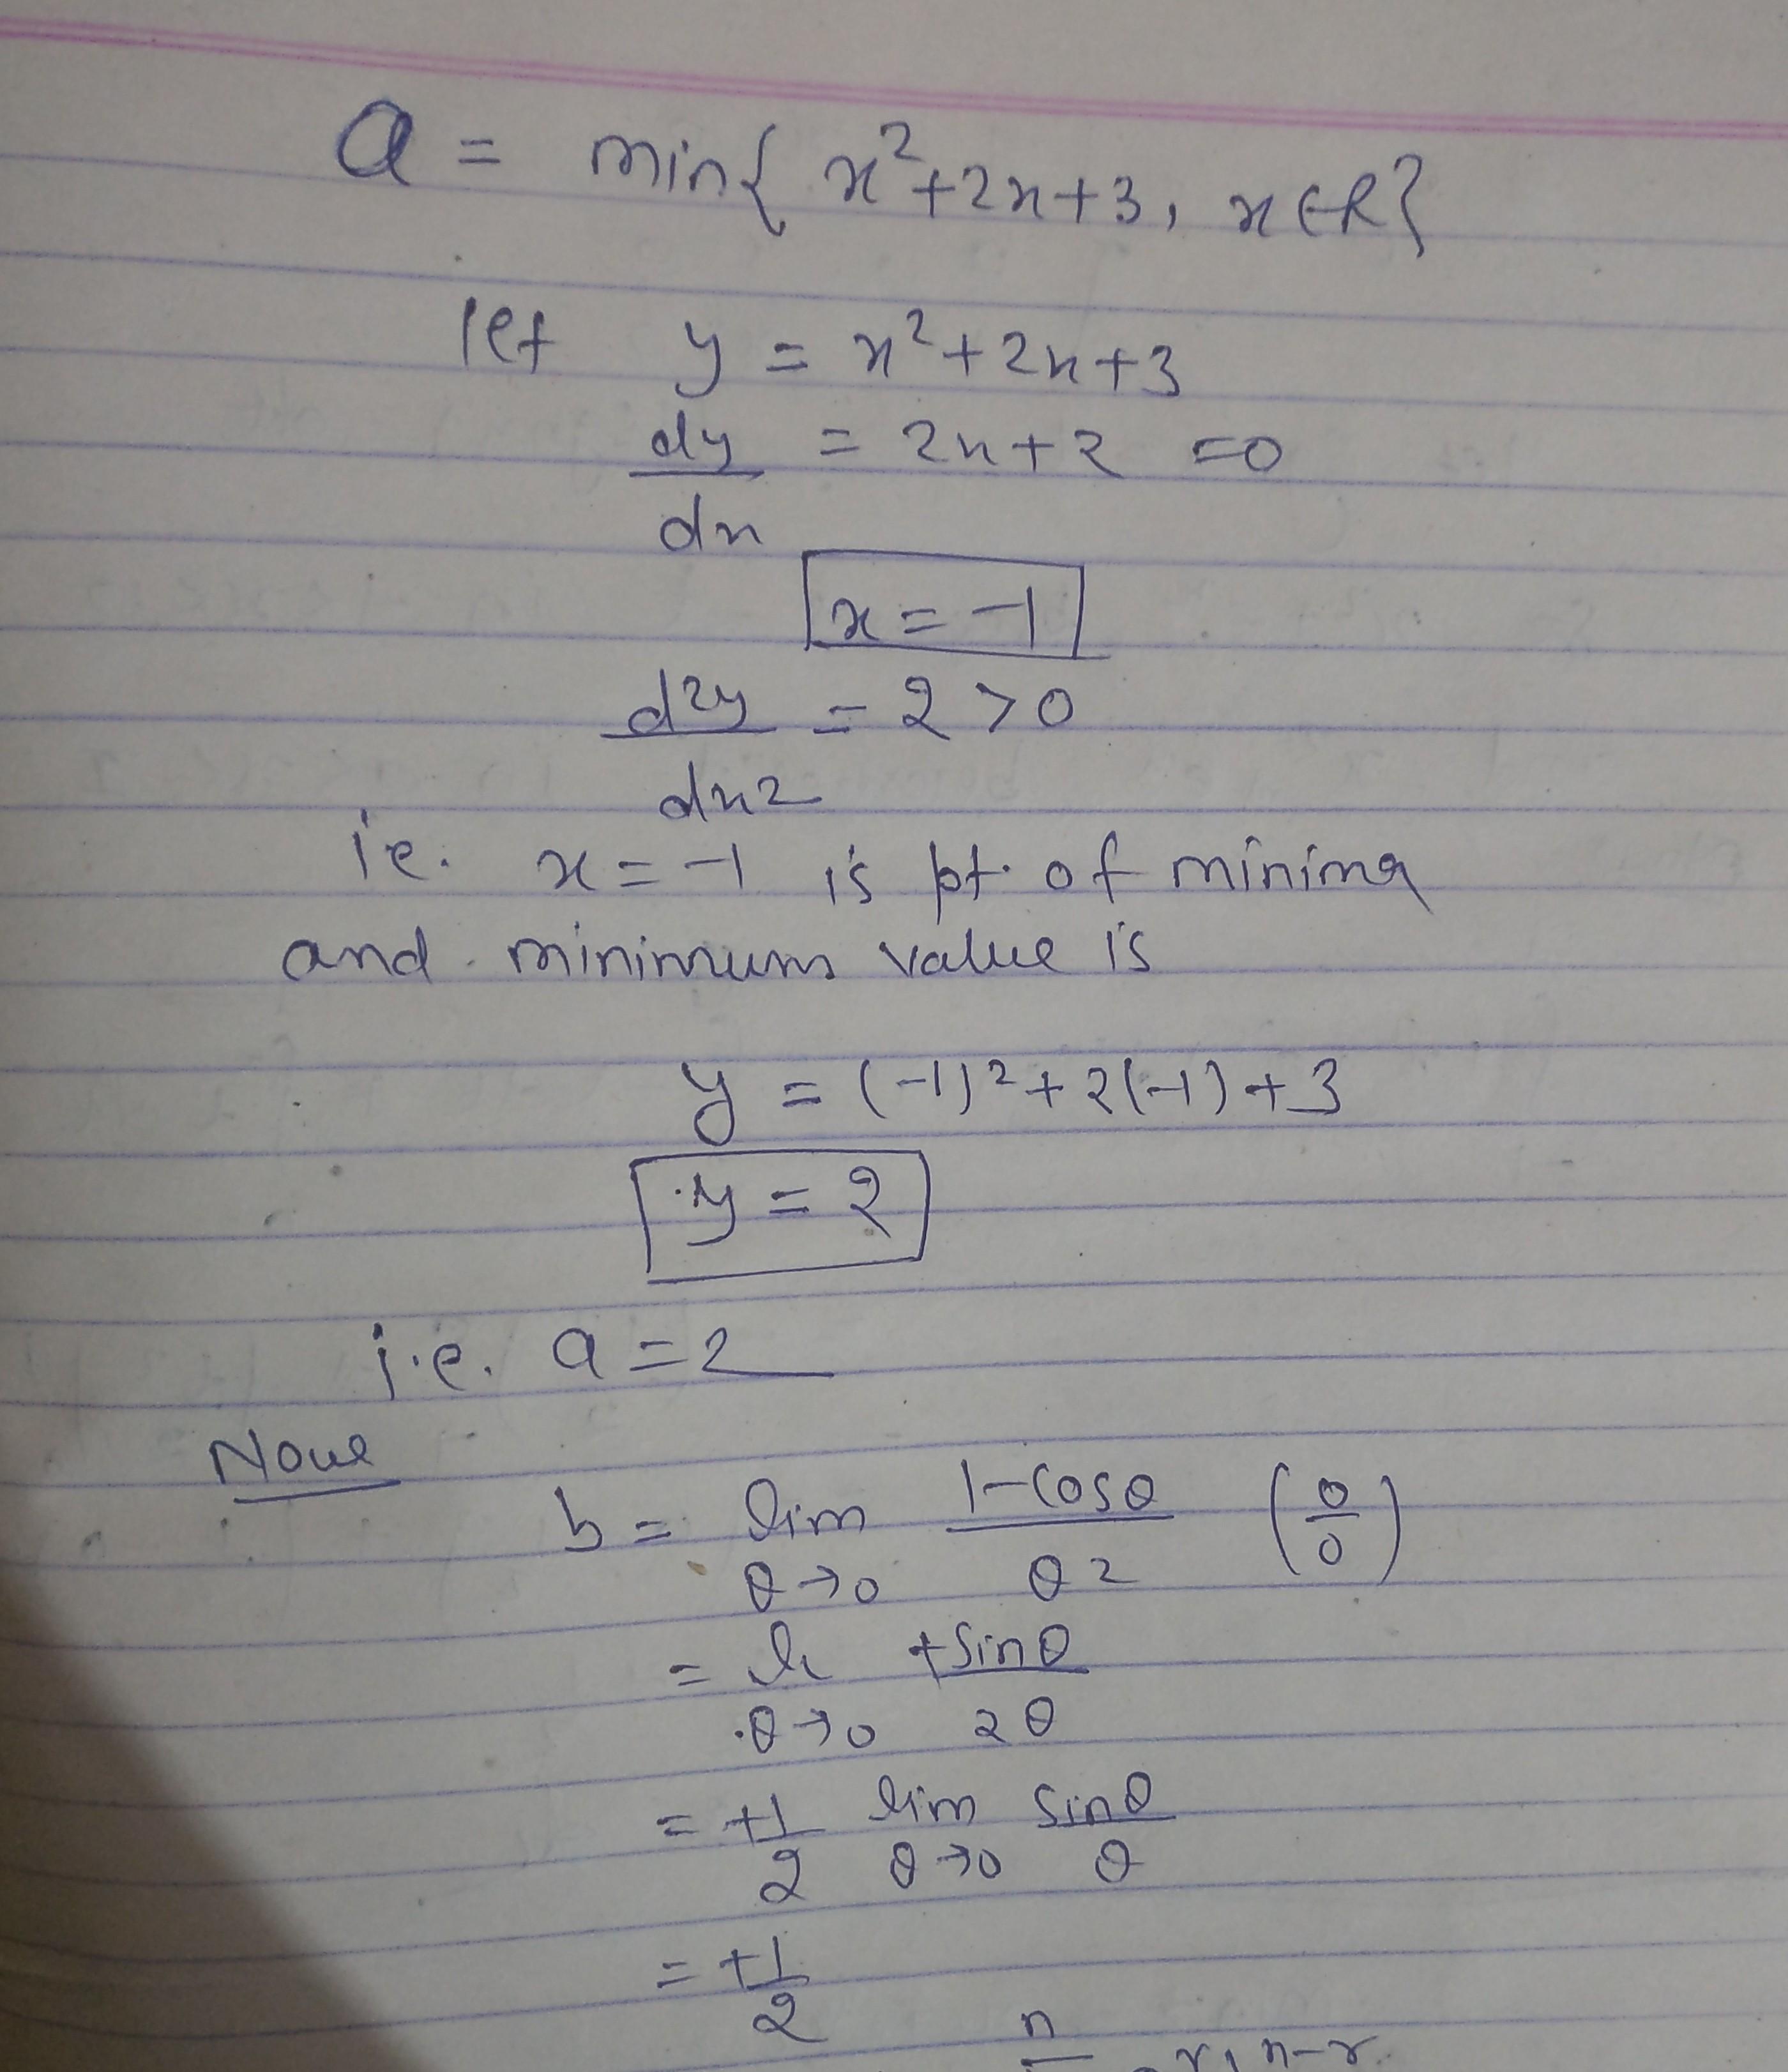 a = min{ x²+2x+3, x∈R}
let y = x²+2x+3
dy/dx = 2x+2 =0
x = -1
d²y/dx² = 2 > 0
ie. x = -1 is pt. of minima
and minimum value is
y = (-1)²+2(-1)+3
y = 2
i.e. a = 2
Now
b = lim θ→0 1-cosθ/θ² (0/0)
= li θ→0 +sinθ/2θ
= +1/2 lim θ→0 sinθ/θ
= +1/2
n
r n-r